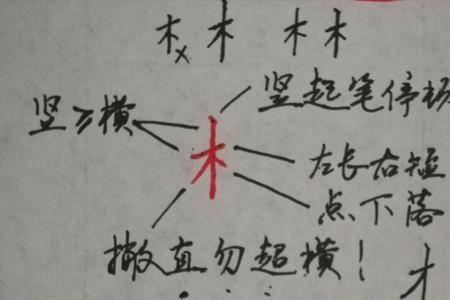 木× 木 木 木
竖起笔停顿
竖≥横
木
左长右短
点下落
撇直勿超横！